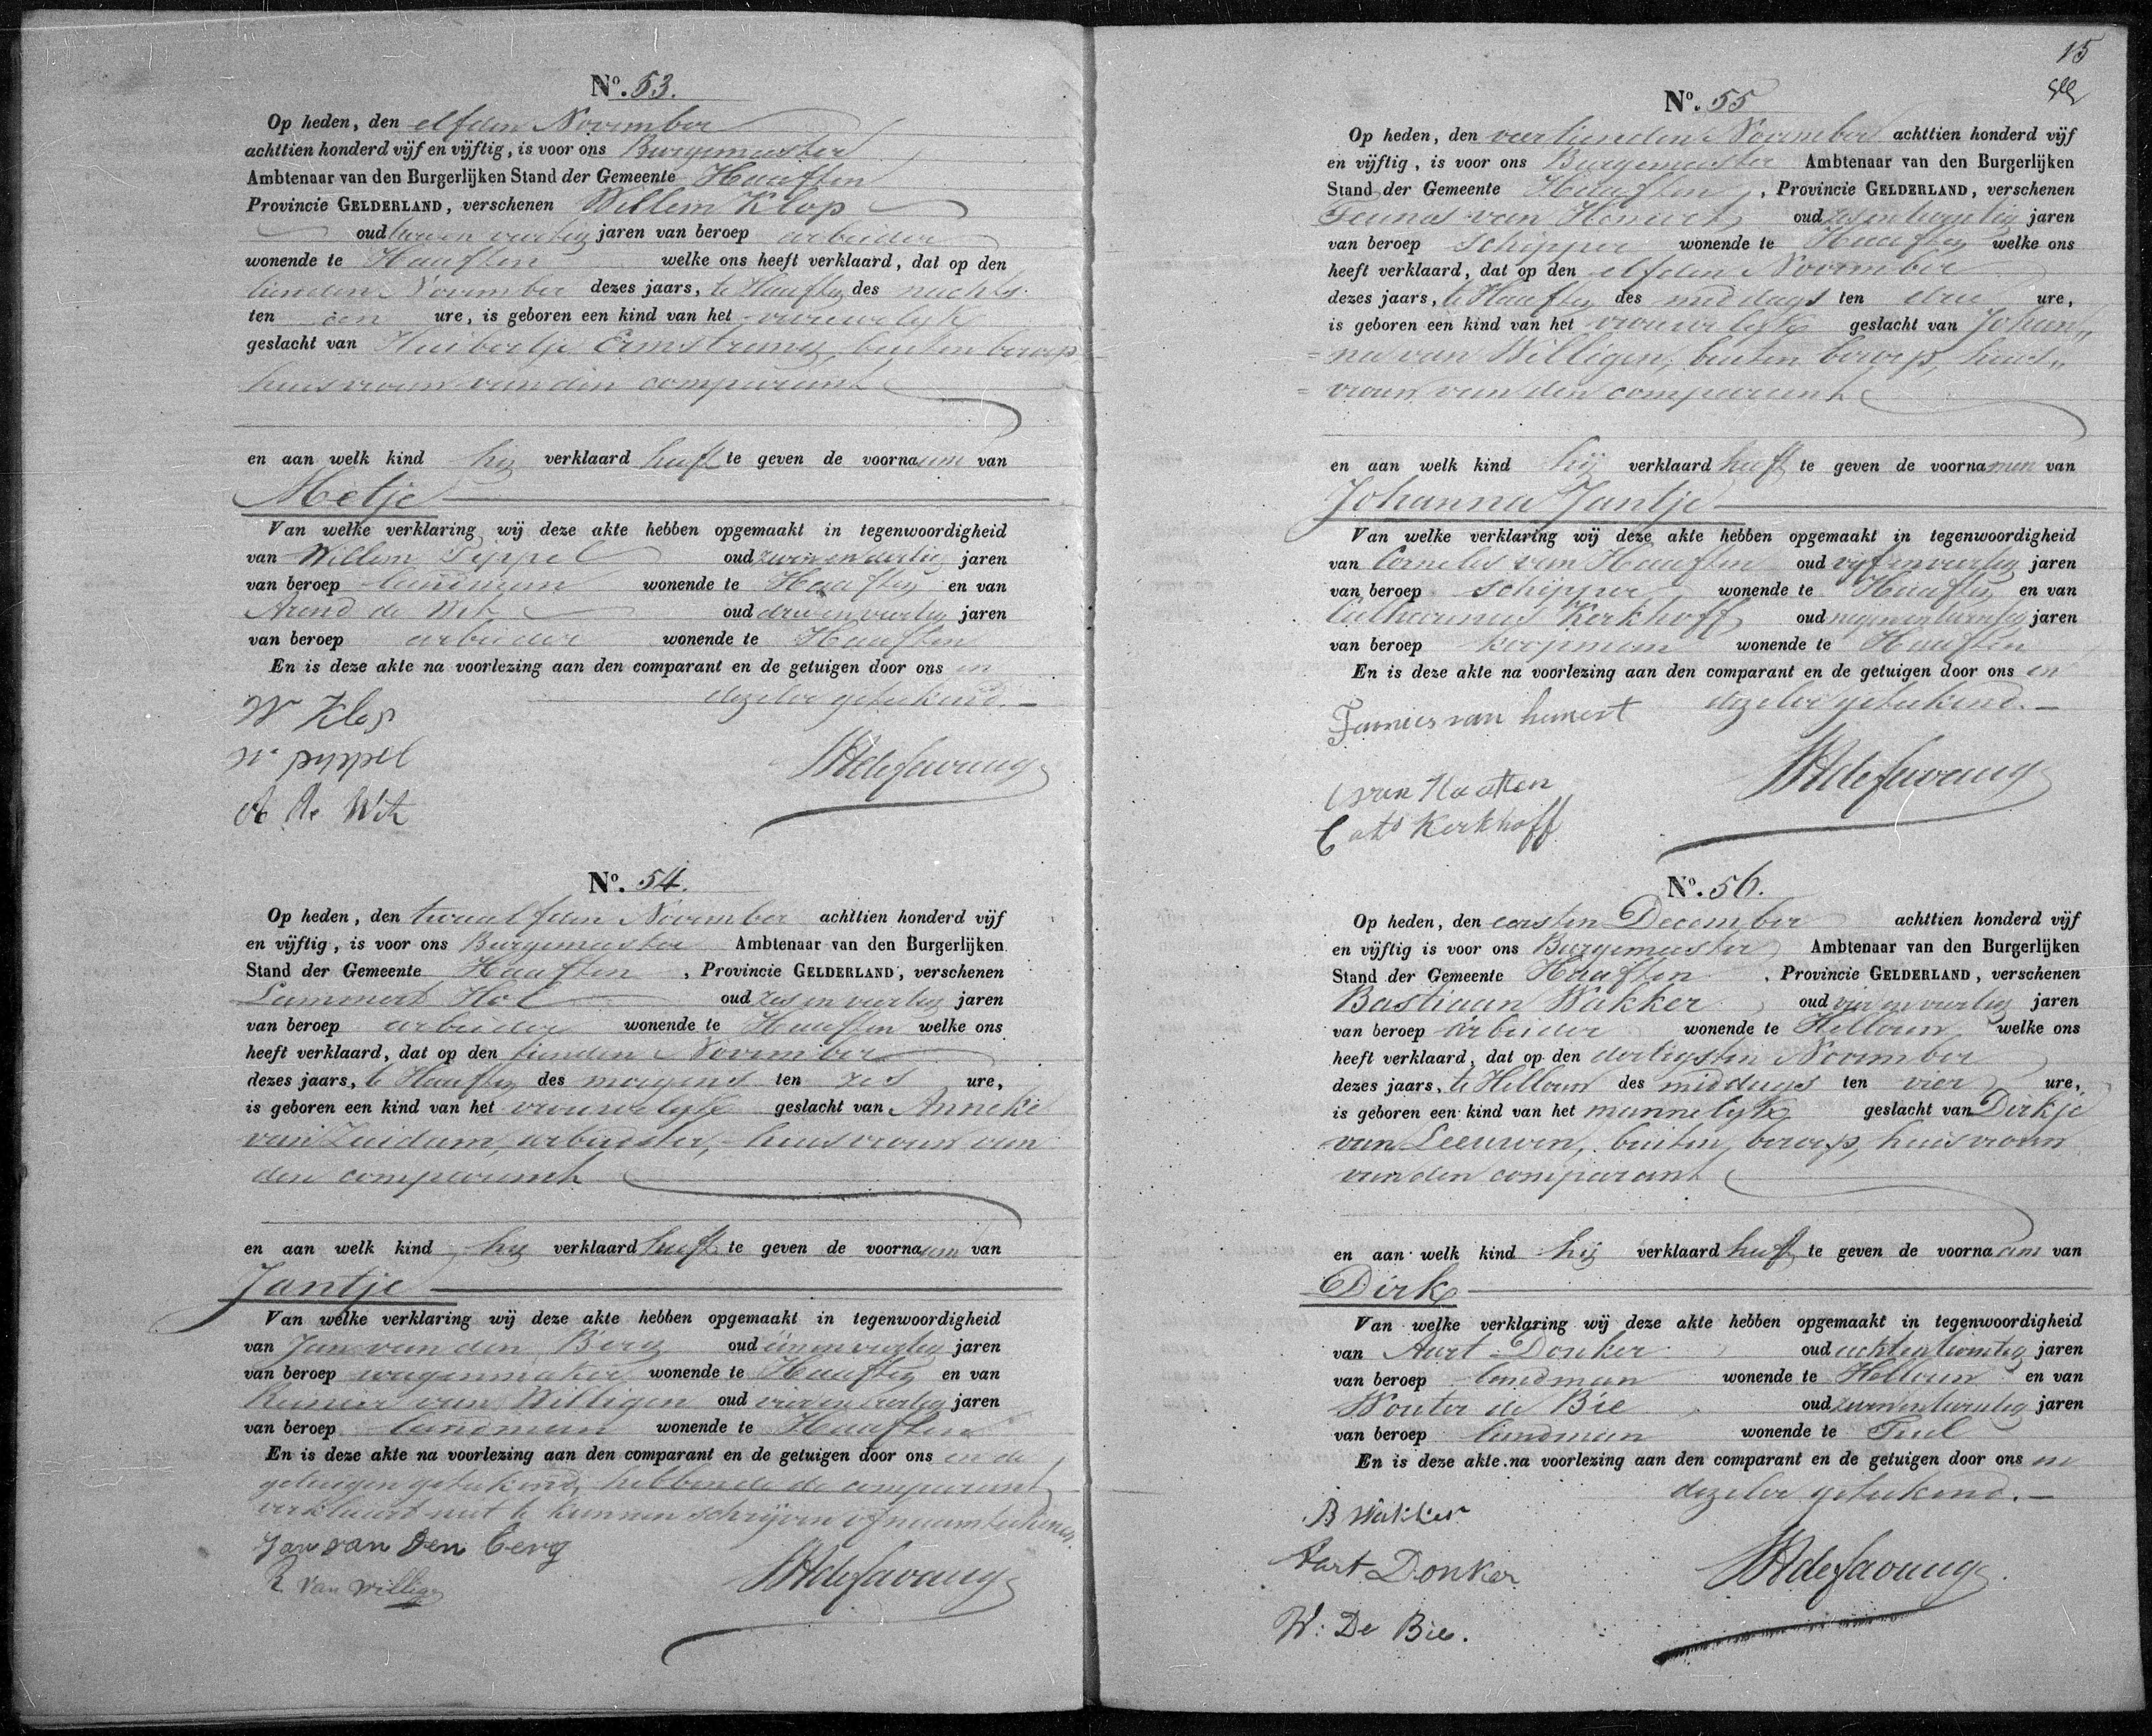 No. 53.
Op heden, den elfden November
achttien honderd vijf en vijftig, is voor ons Burgemeester
Ambtenaar van den Burgerlijken Stand der Gemeente Haaften
Provincie GELDERLAND, verschenen Willem Klop
oud twee en veertig jaren van beroep arbeider
wonende te Haaften welke ons heeft verklaard, dat op den
tienden November dezes jaars, te Haaften des nachts
ten een ure, is geboren een kind van het vrouwelijk
geslacht van Huibertje Ermstrang, buiten beroep
huisvrouw van den comparant
en aan welk kind hij verklaard heeft te geven de voornaam van
Metje
Van welke verklaring wij deze akte hebben opgemaakt in tegenwoordigheid
van Willem Pippel oud zeven en dertig jaren
van beroep landman wonende te Haaften en van
Arend de Wit oud drie en veertig jaren
van beroep arbeider wonende te Haaften
En is deze akte na voorlezing aan den comparant en de getuigen door ons en
dezelve geteekend.
W Klop
W pippel
A de Wit
No. 54.
Op heden, den twaalfden November achttien honderd vijf
en vijftig, is voor ons Burgemeester Ambtenaar van den Burgerlijken
Stand der Gemeente Haaften, Provincie GELDERLAND, verschenen
Lammert Hol oud zes en veertig jaren
van beroep arbeider wonende te Haaften welke ons
heeft verklaard, dat op den tienden November
dezes jaars, te Haaften des morgens ten zes ure,
is geboren een kind van het vrouwelijk geslacht van Anneke
van Zuidam, arbeidster, huisvrouw van
den comparant
en aan welk kind hij verklaard heeft te geven de voornaam van
Jantje
Van welke verklaring wij deze akte hebben opgemaakt in tegenwoordigheid
van Jan van den Berg oud één en veertig jaren
van beroep wagenmaker wonende te Haaften en van
Reinier van Willigen oud vier en veertig jaren
van beroep landman wonende te Haaften
En is deze akte na voorlezing aan den comparant en de getuigen door ons en de
getuigen geteekend, hebbende de comparant
verklaard niet te kunnen schrijven of naamteekenen
Jan van den berg
R van willige
15
No. 55
Op heden, den veertienden November achttien honderd vijf
en vijftig, is voor ons Burgemeester Ambtenaar van den Burgerlijken
Stand der Gemeente Haaften, Provincie GELDERLAND, verschenen
Teunis van Hemert oud zes en twintig jaren
van beroep schipper wonende te Haaften welke ons
heeft verklaard, dat op den elfden November
dezes jaars, te Haaften des middags ten drie ure,
is geboren een kind van het vrouwelijk geslacht van Johan„
=na van Willigen, buiten beroep, huis„
=vrouw van den comparant
en aan welk kind hij verklaard heeft te geven de voornamen van
Johanna Jantje
Van welke verklaring wij deze akte hebben opgemaakt in tegenwoordigheid
van Cornelis van Haaften oud vijf en veertig jaren
van beroep schipper wonende te Haaften en van
Catharinus Kerkhoff oud negen en twintig jaren
van beroep koopman wonende te Haaften
En is deze akte na voorlezing aan den comparant en de getuigen door ons en
dezelve geteekend.
Teunies van hemert
C van Haaften
Cats Kerkhoff
No. 56.
Op heden, den eersten December achttien honderd vijf
en vijftig is voor ons Burgemeester Ambtenaar van den Burgerlijken
Stand der Gemeente Haaften, Provincie GELDERLAND, verschenen
Bastiaan Wakker oud vier en veertig jaren
van beroep arbeider wonende te Hellouw welke ons
heeft verklaard, dat op den dertigsten November
dezes jaars, te Hellouw des middags ten vier ure,
is geboren een kind van het mannelijk geslacht van Dirkje
van Leeuwen, buiten beroep, huisvrouw
van den comparant
en aan welk kind hij verklaard heeft te geven de voornaam van
Dirk
Van welke verklaring wij deze akte hebben opgemaakt in tegenwoordigheid
van Aart Donker oud acht en twintig jaren
van beroep landman wonende te Hellouw en van
Wouter de Bie oud zeven en twintig jaren
van beroep landman wonende te Tuil
En is deze akte na voorlezing aan den comparant en de getuigen door ons en
dezelve geteekend.
B Wakker
Aart Donker
W: De Bie.